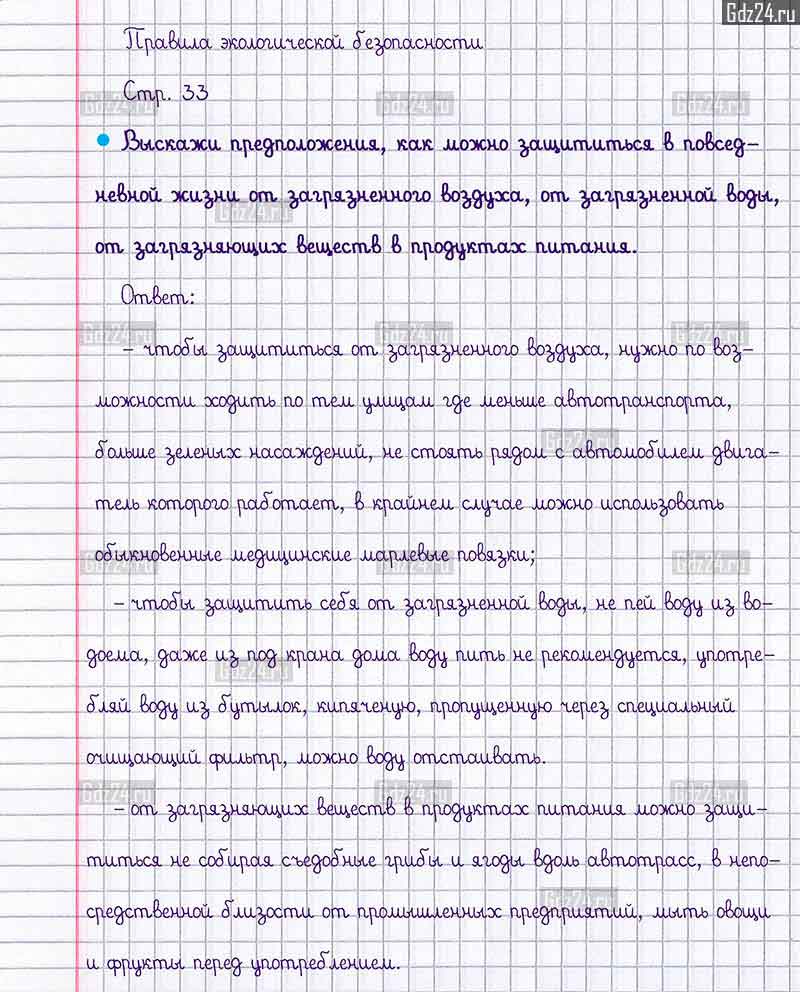 Gdz24.ru
Правила экологической безопасности
Стр. 33
Выскажи предположения, как можно защититься в повсед-
невной жизни от загрязненного воздуха, от загрязненной воды,
от загрязняющих веществ в продуктах питания.
Ответ:
– чтобы защититься от загрязненного воздуха, нужно по воз-
можности ходить по тем улицам где меньше автотранспорта,
больше зеленых насаждений, не стоять рядом с автомобилем двига-
тель которого работает, в крайнем случае можно использовать
обыкновенные медицинские марлевые повязки;
– чтобы защитить себя от загрязненной воды, не пей воду из во-
доема, даже из под крана дома воду пить не рекомендуется, употре-
бляй воду из бутылок, кипяченую, пропущенную через специальный
очищающий фильтр, можно воду отстаивать.
– от загрязняющих веществ в продуктах питания можно защи-
титься не собирая съедобные грибы и ягоды вдоль автотрасс, в непо-
средственной близости от промышленных предприятий, мыть овощи
и фрукты перед употреблением.